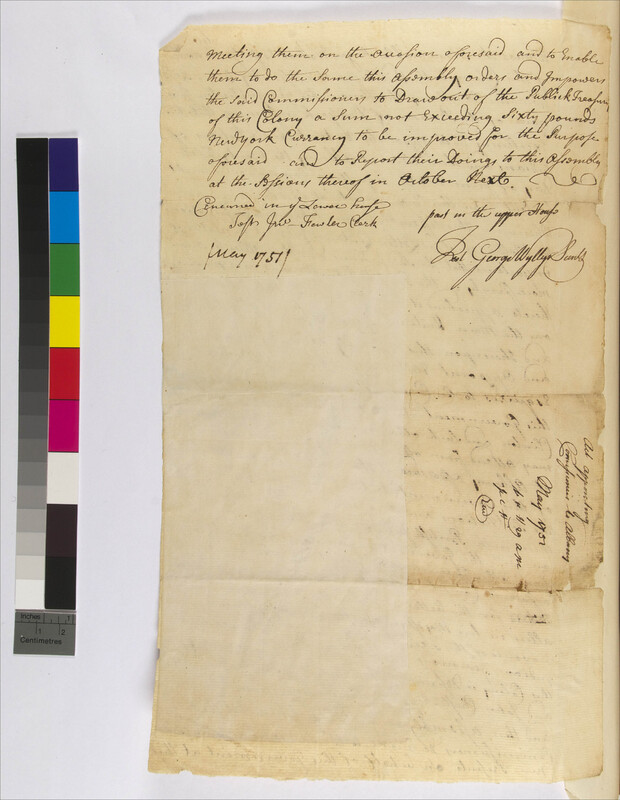 meeting them on the occasion aforesaid and to Enable
them to do the Same this Assembly orders and Impowers
the said Commissioners to Draw out of the Publick Treasury
of this Colony a Sum not Exceeding Sixty pounds
Newyork Currancy to be improved for the Purpose
aforesaid and to Report their Doings to this Assembly
at the Sessions thereof in October Next.
Concurred in ye Lower house
Test Jno Fowler Clerk
past in the upper House
Test George Wyllys Secret
[May 1751]
Act appointing
Commissrs to Albany
May 1751
Inches 1 2
Centimetres